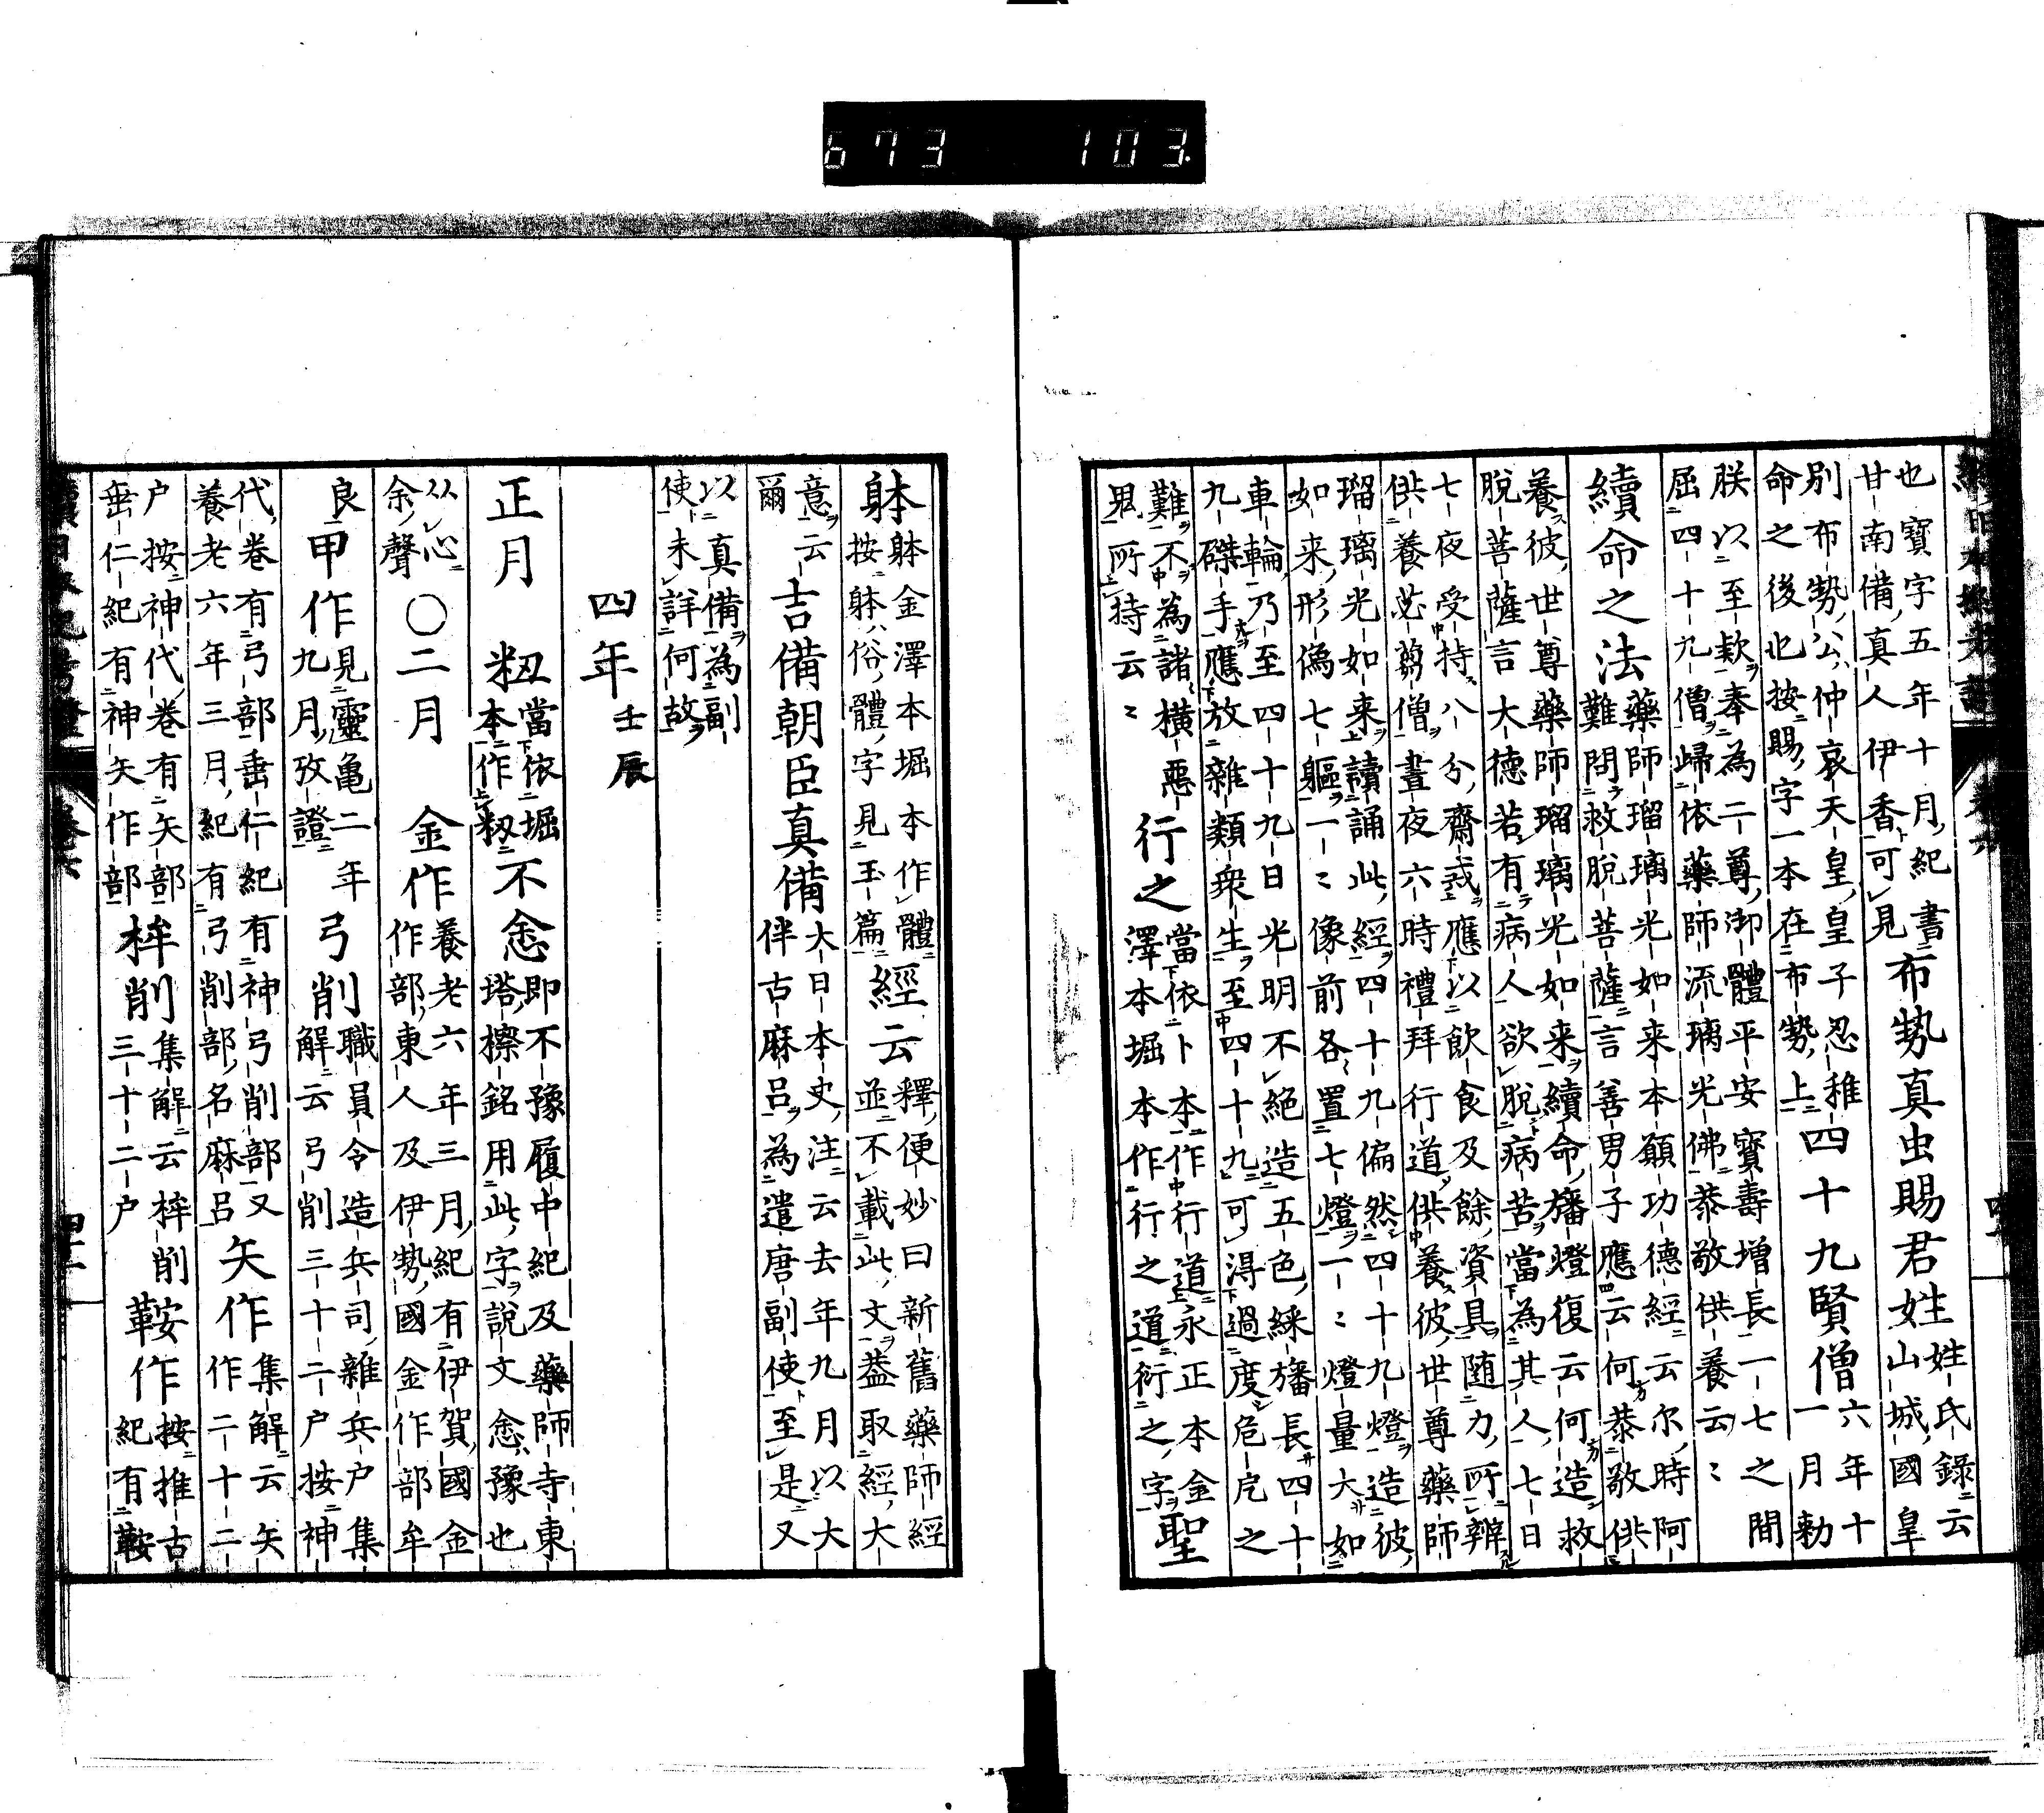 673 103
也寶字五年十月紀書
甘南備真人伊香可見
布勢真虫賜君姓
姓氏錄云
山城國皇
別布勢公仲哀天皇皇子忍稚
命之後也按賜字一本在布勢上
四十九賢僧
六年十
一月勅
朕以至款奉為二尊御體平安寶壽增長一七之間
屈四十九僧歸依藥師流璃光佛恭敬供養云〻
續命之法
藥師瑠璃光如来本願功德經云尔時阿
難問救脫菩薩言善男子應云何恭敬供
養彼世尊藥師瑠璃光如来續命旛燈復云何造救
脫菩薩言大德若有病人欲脫病苦當為其人七日
七夜受持八分齋戒應以飲食及餘資具随力所辨
供養苾蒭僧晝夜六時禮拜行道供養彼世尊藥師
瑠璃光如来讀誦此經四十九偏然四十九燈造彼
如来形像七軀一〻像前各置七燈一〻燈量大如
車輪乃至四十九日光明不絕造五色綵旛長四十
九磔手應放雜類衆生至四十九可淂過度危戹之
難不為諸橫惡
鬼所持云〻
行之
當依卜本作行道永正本金
澤本堀本作行之道衍之字
聖
躰
躰金澤本堀本作體
按躰俗體字見玉篇
經云
釋便妙曰新舊藥師經
並不載此文葢取經大
意云
爾
吉備朝臣真備
大日本史注云去年九月以大
伴古麻呂為遣唐副使至是又
以真備為副
使未詳何故
四年壬辰
正月
籾
當依堀
本作籾
不悆
即不豫履中紀及藥師寺東
塔檫銘用此字說文悆豫也
从心
余聲
〇二月
金作
養老六年三月紀有伊賀國金
作部東人及伊勢國金作部牟
良
甲作
見靈亀二年
九月攷證
弓削
職員令造兵司雜兵户集
解云弓削三十二户按神
代卷有弓部垂仁紀有神弓削部又
養老六年三月紀有弓削部名麻呂
矢作
集解云矢
作二十二
户按神代卷有矢部
垂仁紀有神矢作部
桙削
集解云桙削
三十二户
鞍作
按推古
紀有鞍